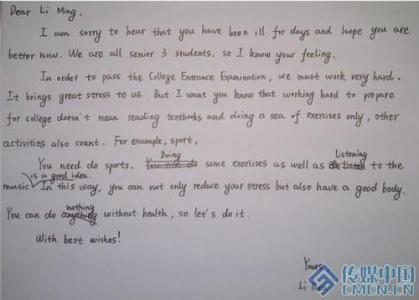 Dear Li Ming,
I am sorry to hear that you have been ill for days and hope you are
better now. We are all senior 3 students, so I know your feeling.
In order to pass the College Entrance Examination, we must work very hard.
It brings great stress to us. But I want you know that working hard to prepare
for college doesn't mean reading textbooks and doing a sea of exercises only, other
activities also count. For example, sport,
You need do sports. Doing some exercises as well as Listening to the
is a good idea.
music. In this way, you can not only reduce your stress but also have a good body.
You can do nothing without health, so let's do it.
With best wishes!
Yours,
Li
传媒中国
CMCN.CN